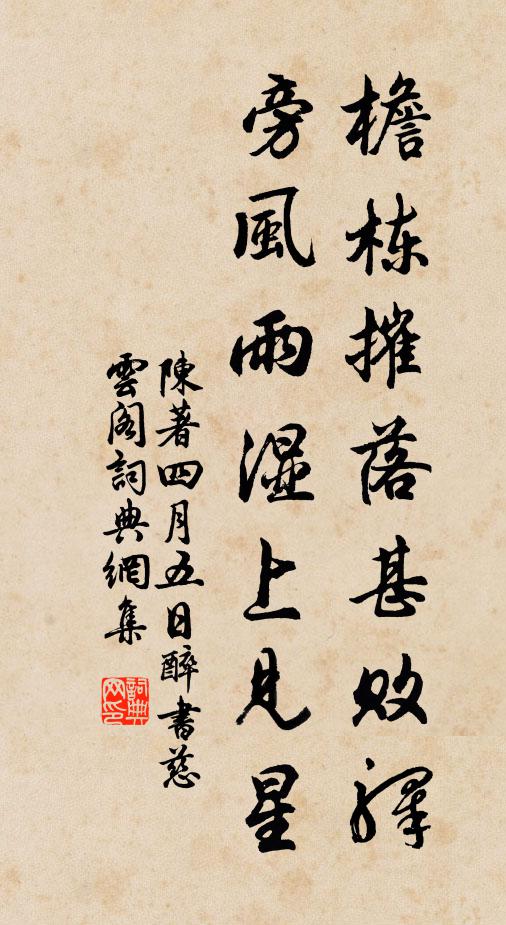 檐栋摧落甚败驿
旁風雨濕上見星
陳著四月五日醉書慈
雲閣詞典網集
詞典网印